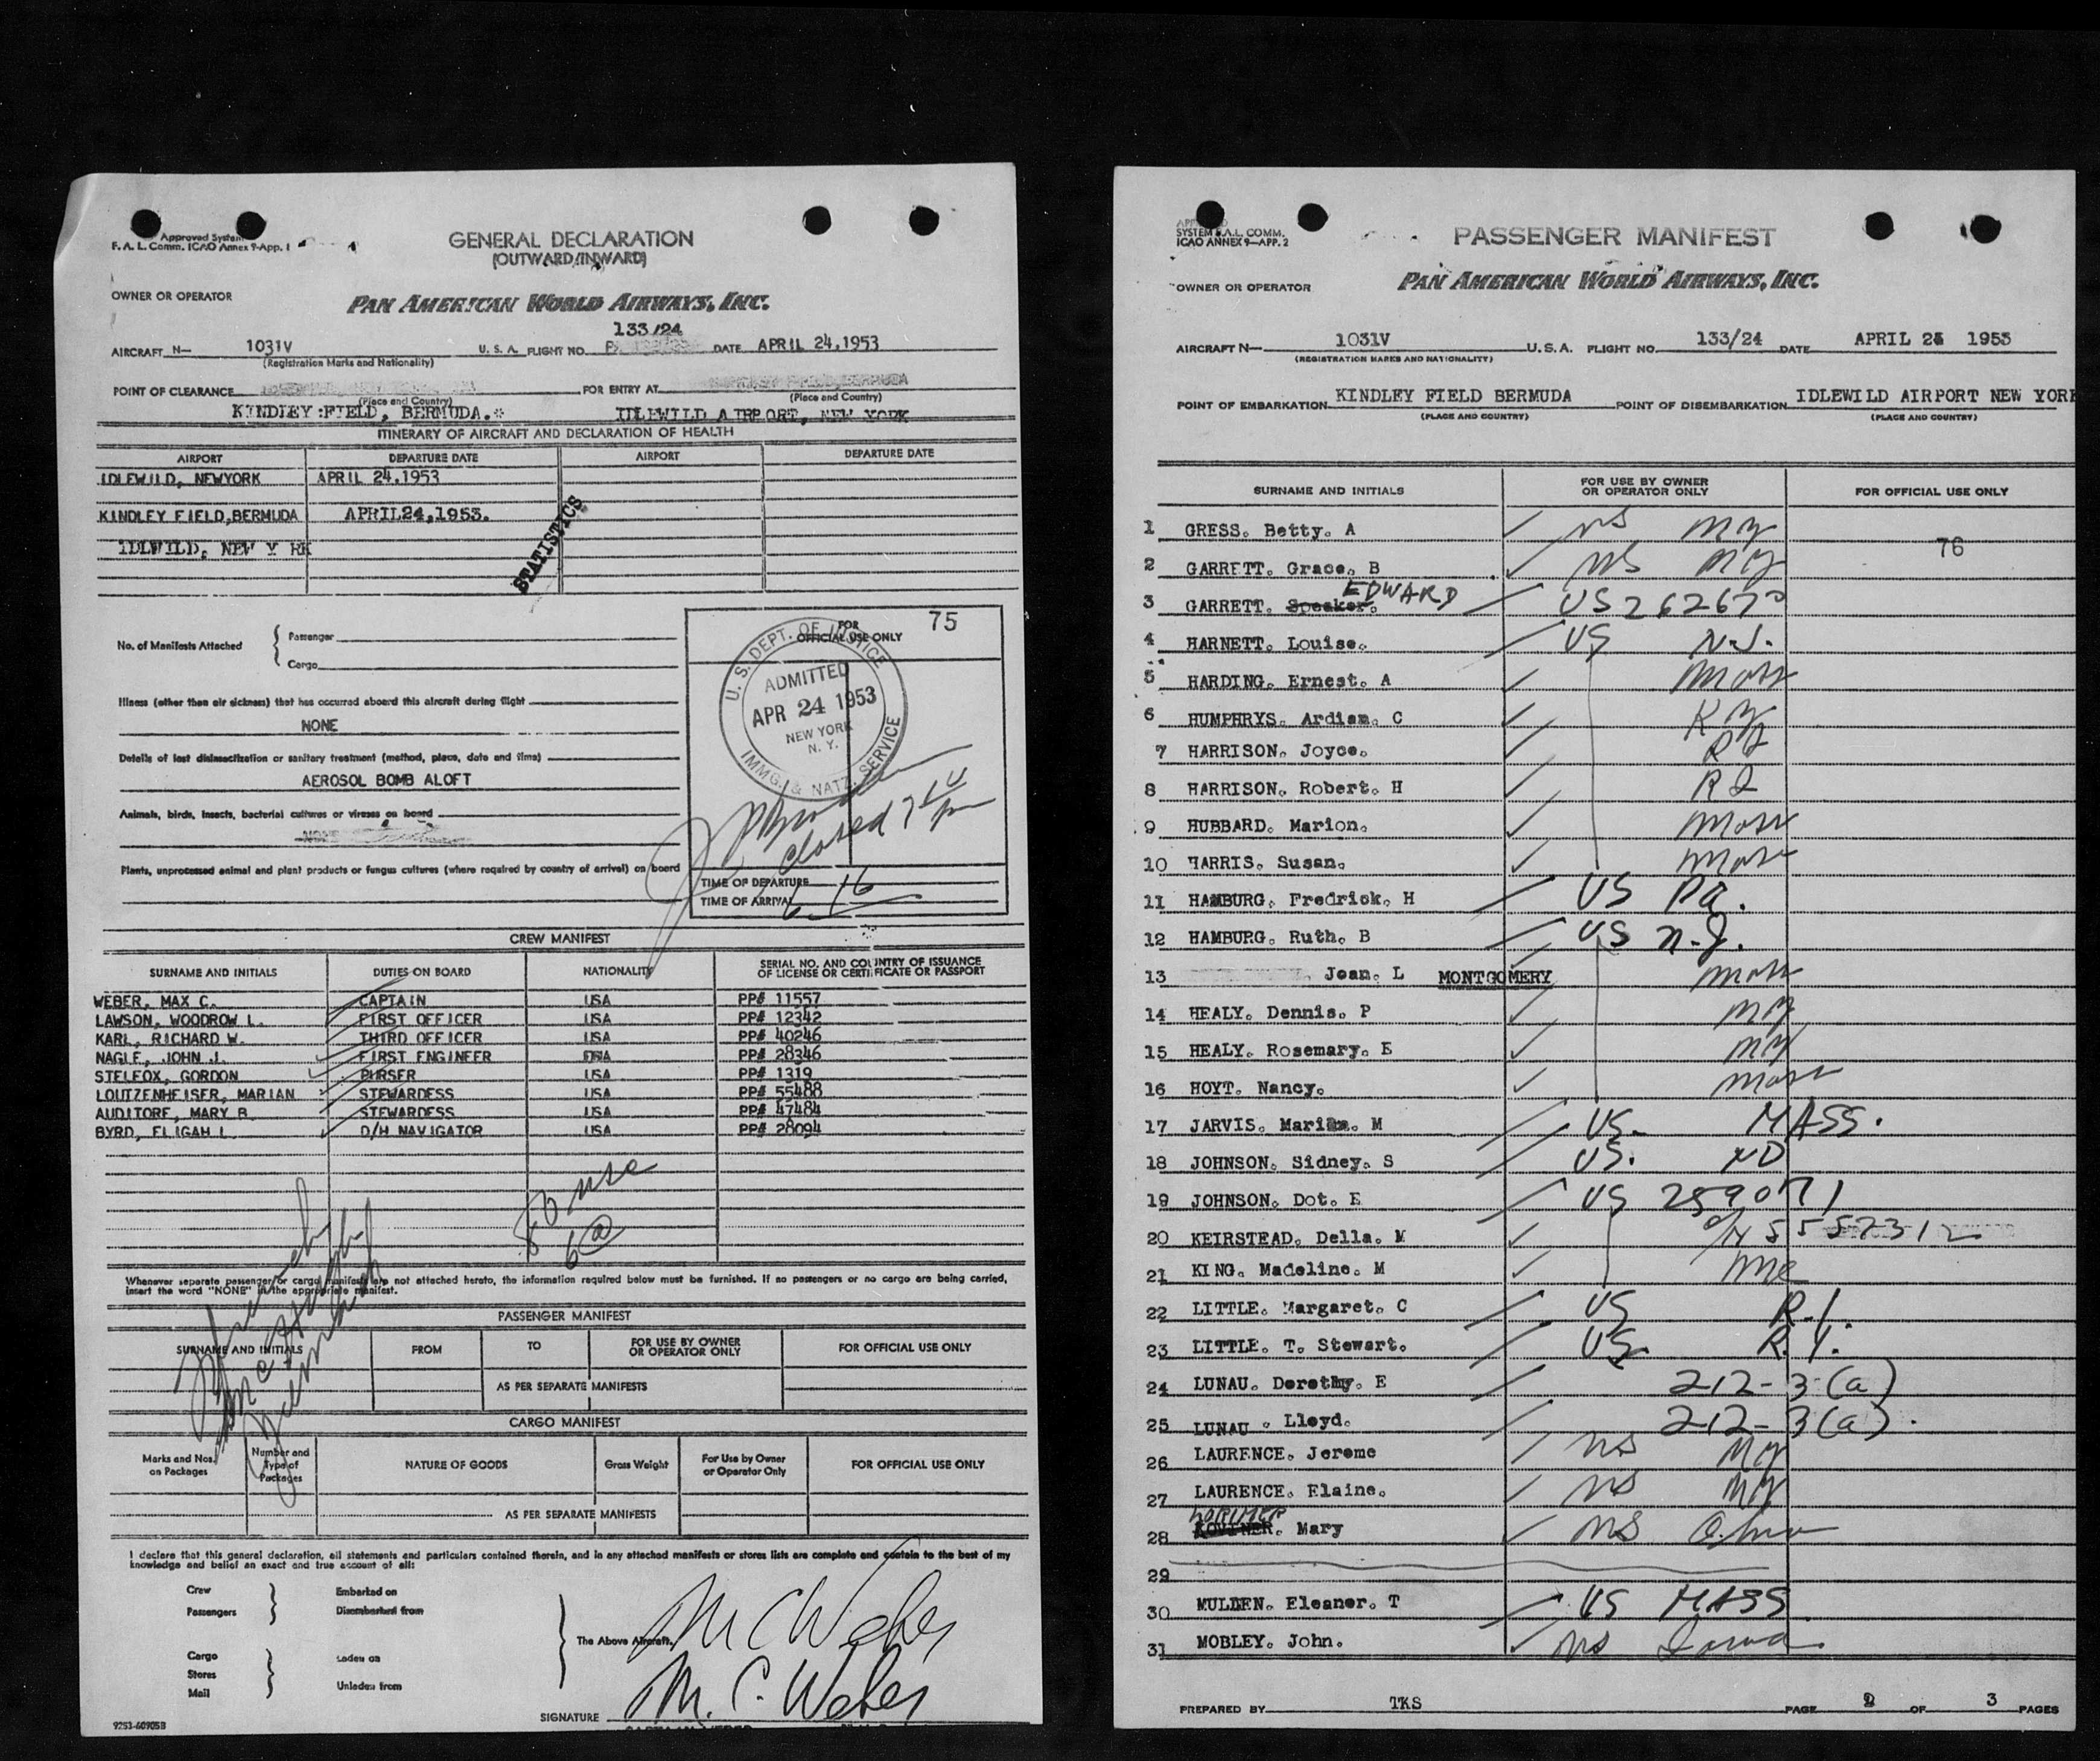 Approved System
F. A. L. Comm. ICAO Annex 9-App. 1
GENERAL DECLARATION
(OUTWARD/INWARD)
OWNER OR OPERATOR
PAN AMERICAN WORLD AIRWAYS, INC.
133/24
AIRCRAFT N— 1031V U. S. A. FLIGHT NO. DATE APRIL 24,1953
(Registration Marks and Nationality)
POINT OF CLEARANCE FOR ENTRY AT
(Place and Country) (Place and Country)
KINDLEY FIELD, BERMUDA.* IDLEWILD AIRPORT, NEW YORK
ITINERARY OF AIRCRAFT AND DECLARATION OF HEALTH
AIRPORT DEPARTURE DATE AIRPORT DEPARTURE DATE
IDLEWILD, NEWYORK APRIL 24,1953
KINDLEY FIELD,BERMUDA APRIL24,1953.
IDLWILD, NEW Y RK
STATISTICS
No. of Manifests Attached { Passenger
Cargo
Illness (other than air sickness) that has occurred aboard this aircraft during flight
NONE
Details of last disinsectization or sanitary treatment (method, place, date and time)
AEROSOL BOMB ALOFT
Animals, birds, insects, bacterial cultures or viruses on board
NONE
Plants, unprocessed animal and plant products or fungus cultures (where required by country of arrival) on board
FOR OFFICIAL USE ONLY 75
U. S. DEPT. OF JUSTICE
ADMITTED
APR 24 1953
NEW YORK
N. Y.
IMMG. & NATZ. SERVICE
closed 7 10 pm
TIME OF DEPARTURE
TIME OF ARRIVAL 6 16
CREW MANIFEST
SURNAME AND INITIALS DUTIES ON BOARD NATIONALITY SERIAL NO. AND COUNTRY OF ISSUANCE OF LICENSE OR CERTIFICATE OR PASSPORT
WEBER, MAX C. CAPTAIN USA PP# 11557
LAWSON, WOODROW L. FIRST OFFICER USA PP# 12342
KARL, RICHARD W. THIRD OFFICER USA PP# 40246
NAGLE, JOHN J. FIRST ENGINEER USA PP# 28346
STELFOX, GORDON PURSER USA PP# 1319
LOUTZENHEISER, MARIAN STEWARDESS USA PP# 55488
AUDITORE, MARY B. STEWARDESS USA PP# 47484
BYRD, ELIGAH L. D/H NAVIGATOR USA PP# 28094
Whenever separate passenger/or cargo manifests are not attached hereto, the information required below must be furnished. If no passengers or no cargo are being carried,
insert the word "NONE" in the appropriate manifest.
PASSENGER MANIFEST
SURNAME AND INITIALS FROM TO FOR USE BY OWNER OR OPERATOR ONLY FOR OFFICIAL USE ONLY
AS PER SEPARATE MANIFESTS
CARGO MANIFEST
Marks and Nos. on Packages Number and Type of Packages NATURE OF GOODS Gross Weight For Use by Owner or Operator Only FOR OFFICIAL USE ONLY
AS PER SEPARATE MANIFESTS
I declare that this general declaration, all statements and particulars contained therein, and in any attached manifests or stores lists are complete and contain to the best of my
knowledge and belief an exact and true account of all:
Crew Embarked on
Passengers Disembarked from
The Above Aircraft.
Cargo Laden on
Stores
Mail Unladen from
M C Weber
M. C. Weber
SIGNATURE
9253-60905B
APPROVED
SYSTEM F.A.L. COMM.
ICAO ANNEX 9—APP. 2
PASSENGER MANIFEST
PAN AMERICAN WORLD AIRWAYS, INC.
OWNER OR OPERATOR
AIRCRAFT N— 1031V U.S.A. FLIGHT NO. 133/24 DATE APRIL 24 1953
(REGISTRATION MARKS AND NATIONALITY)
POINT OF EMBARKATION KINDLEY FIELD BERMUDA POINT OF DISEMBARKATION IDLEWILD AIRPORT NEW YORK
(PLACE AND COUNTRY) (PLACE AND COUNTRY)
SURNAME AND INITIALS FOR USE BY OWNER OR OPERATOR ONLY FOR OFFICIAL USE ONLY
1 GRESS. Betty. A US NY
76
2 GARRETT. Grace. B US NY
3 GARRETT. Speaker. EDWARD US 262670
4 HARNETT. Louise. US N.J.
5 HARDING. Ernest. A Mass
6 HUMPHRYS. Ardiam. C Ky
7 HARRISON. Joyce. RI
8 HARRISON. Robert. H RI
9 HUBBARD. Marion. Mass
10 HARRIS. Susan. Mass
11 HAMBURG. Fredrick. H US Pa.
12 HAMBURG. Ruth. B US N.J.
13 Jean. L MONTGOMERY Mass
14 HEALY. Dennis. P NY
15 HEALY. Rosemary. E NY
16 HOYT. Nancy. Mass
17 JARVIS. Mariam. M US. MASS.
18 JOHNSON. Sidney. S US. ND
19 JOHNSON. Dot. E US 259071
20 KEIRSTEAD. Della. M c/N 5557312
21 KING. Madeline. M Me
22 LITTLE. Margaret. C US R.I.
23 LITTLE. T. Stewart. US. R.I.
24 LUNAU. Dorothy. E 212-3(a)
25 LUNAU. Lloyd. 212-3(a).
26 LAURENCE. Jerome US NY
27 LAURENCE. Elaine. US NY
28 LORIMER. Mary US Ohio
29
30 MULDEN. Eleaner. T US MASS.
31 MOBLEY. John. US Iowa
PREPARED BY TKS PAGE 2 OF 3 PAGES